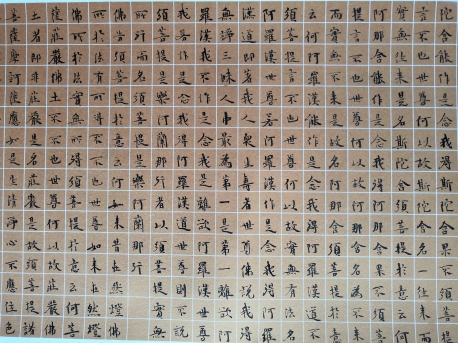 陀含能作是念我得斯陀含果不須菩提
言不也世尊何以故斯陀含名一往來而
實無往來是名斯陀含須菩提於意云何
阿那含能作是念我得阿那含果不須菩
提言不也世尊何以故阿那含名為不來
而實無不來是故名阿那含須菩提於意
云何阿羅漢能作是念我得阿羅漢道不
須菩提言不也世尊何以故實無有法名
阿羅漢世尊若阿羅漢作是念我得阿羅
漢道即著我人眾生壽者世尊佛說我得
無諍三昧人中最為第一是第一離欲阿
羅漢我不作是念我是離欲阿羅漢世尊
我若作是念我得阿羅漢道世尊則不說
須菩提是樂阿蘭那行者以須菩提實無
所行而名須菩提是樂阿蘭那行
佛告須菩提於意云何如來昔在然燈佛
所於法有所得不不也世尊如來在然燈
佛所於法實無所得須菩提於意云何菩
薩莊嚴佛土不不也世尊何以故莊嚴佛
土者即非莊嚴是名莊嚴是故須菩提諸
菩薩摩訶薩應如是生清淨心不應住色